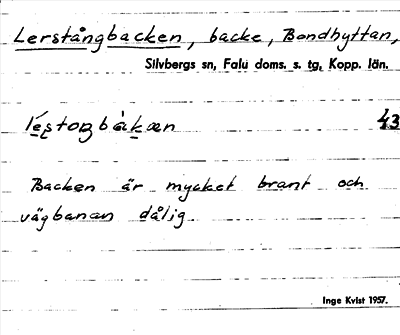 Lerstångbacken, backe, Bondhyttan,
Silvbergs sn, Falu doms. s. tg, Kopp. län.
43
Backen är mycket brant och
vägbanan dålig.
Inge Kvist 1957.